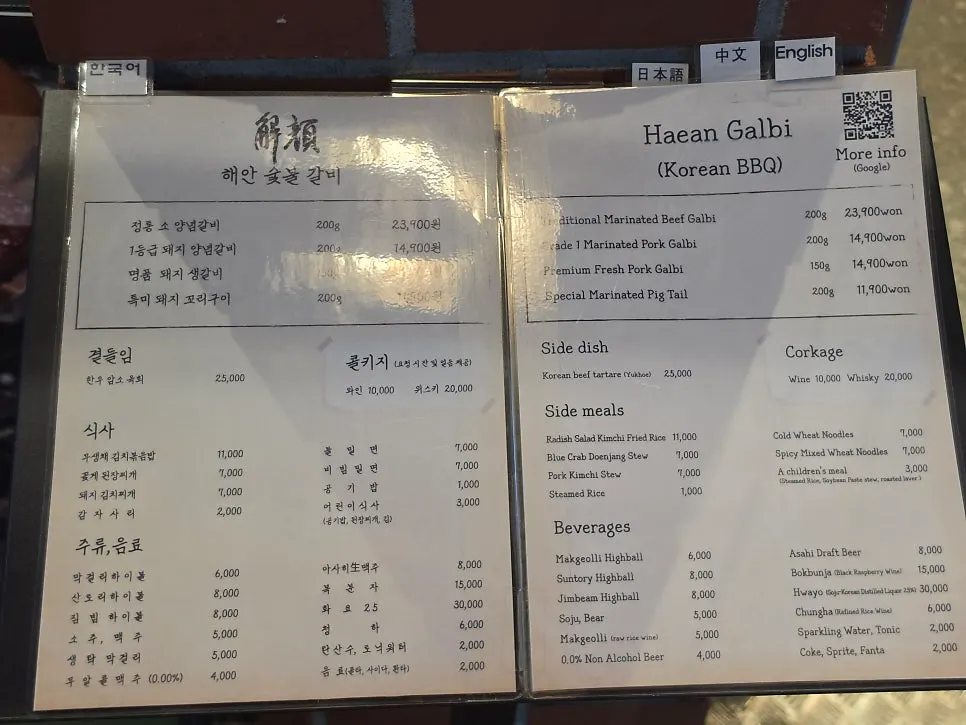 한국어
日本語
中文
English
解顔
해안 숯불갈비
정통 소 양념갈비 200g 23,900원
1등급 돼지 양념갈비 200g 14,900원
명품 돼지 생갈비
특미 돼지 꼬리구이 200g
곁들임
한우 암소 육회 25,000
콜키지 (요청 시 잔 및 얼음 제공)
와인 10,000 위스키 20,000
식사
무생채 김치볶음밥 11,000
꽃게 된장찌개 7,000
돼지 김치찌개 7,000
감자사리 2,000
물밀면 7,000
비빔밀면 7,000
공기밥 1,000
어린이식사 3,000
(공기밥, 된장찌개, 김)
주류,음료
막걸리하이볼 6,000
산토리하이볼 8,000
짐빔하이볼 8,000
소주, 맥주 5,000
생탁막걸리 5,000
무알콜맥주 (0.00%) 4,000
아사히生맥주 8,000
복분자 15,000
화요25 30,000
청하 6,000
탄산수, 토닉워터 2,000
음료(콜라, 사이다, 환타) 2,000
Haean Galbi
(Korean BBQ)
More info
(Google)
Traditional Marinated Beef Galbi 200g 23,900won
Grade 1 Marinated Pork Galbi 200g 14,900won
Premium Fresh Pork Galbi 150g 14,900won
Special Marinated Pig Tail 200g 11,900won
Side dish
Korean beef tartare (Yukhoe) 25,000
Corkage
Wine 10,000 Whisky 20,000
Side meals
Radish Salad Kimchi Fried Rice 11,000
Blue Crab Doenjang Stew 7,000
Pork Kimchi Stew 7,000
Steamed Rice 1,000
Cold Wheat Noodles 7,000
Spicy Mixed Wheat Noodles 7,000
A children's meal 3,000
(Steamed Rice, Soybean Paste stew, roasted laver)
Beverages
Makgeolli Highball 6,000
Suntory Highball 8,000
Jimbeam Highball 8,000
Soju, Bear 5,000
Makgeolli (raw rice wine) 5,000
0.0% Non Alcohol Beer 4,000
Asahi Draft Beer 8,000
Bokbunja (Black Raspberry Wine) 15,000
Hwayo (Soju-Korean Distilled Liquor 25%) 30,000
Chungha (Refined Rice Wine) 6,000
Sparkling Water, Tonic 2,000
Coke, Sprite, Fanta 2,000